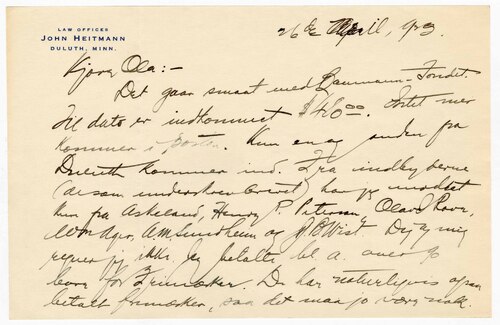 LAW OFFICES
JOHN HEITMANN
DULUTH, MINN.
26de April, 1923
Kjære Ola:-
Det gaar smaat med Baumann-Fondet.
Til dato er indkommet $46.00. Intet mer
kommer i Kun en og anden fra
Duluth kommer ind. Fra indbyderne
(de som underskrev brevet) har jeg modtat
kun fra Askeland, Henry P. Peterson, Olav Rove,
Wm Ager, A.M. Sundheim og J. O. Wist. Dig og mig
regner jeg ikke. Jeg betalte bl. a. over $
bare for Frimærker. Du har naturligvis ogsaa
betalt frimærker, saa det maa jo være nok.